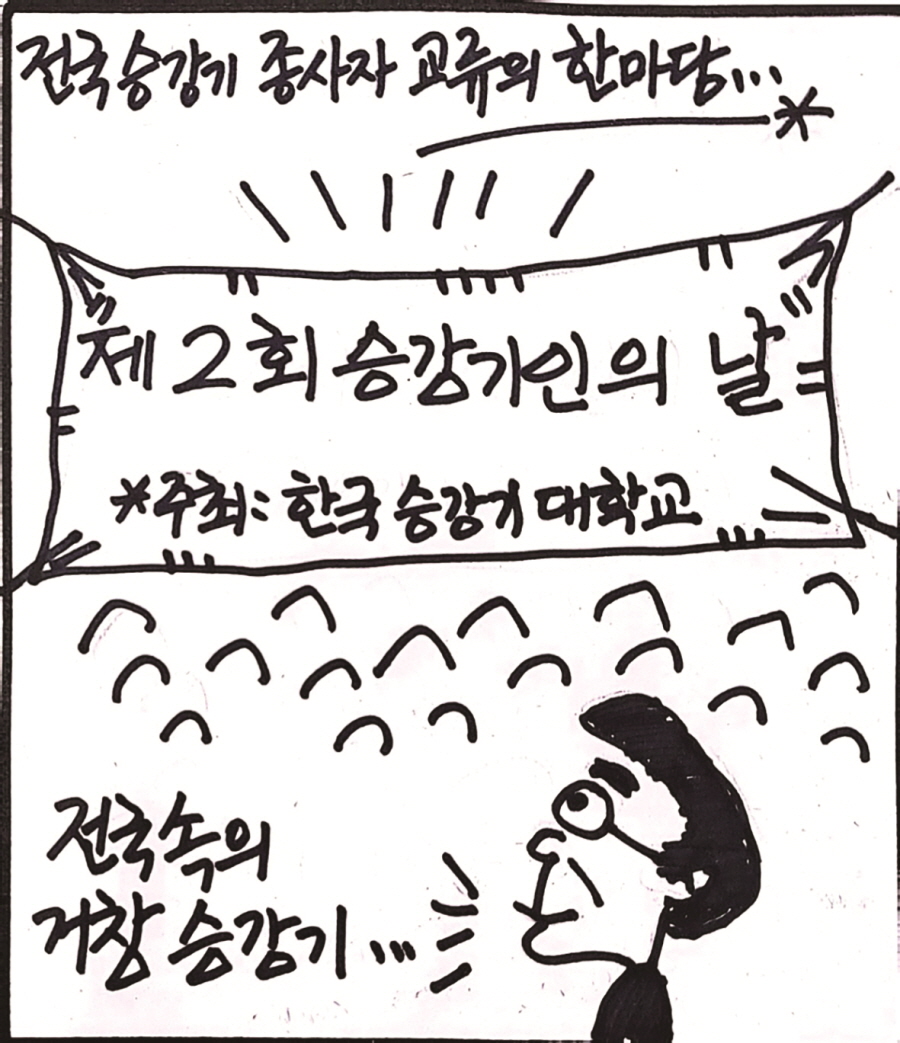 전국승강기 종사자 교류의 한마당...
*
제2회 승강기인의 날
*주최: 한국 승강기 대학교
전국속의
거창 승강기...